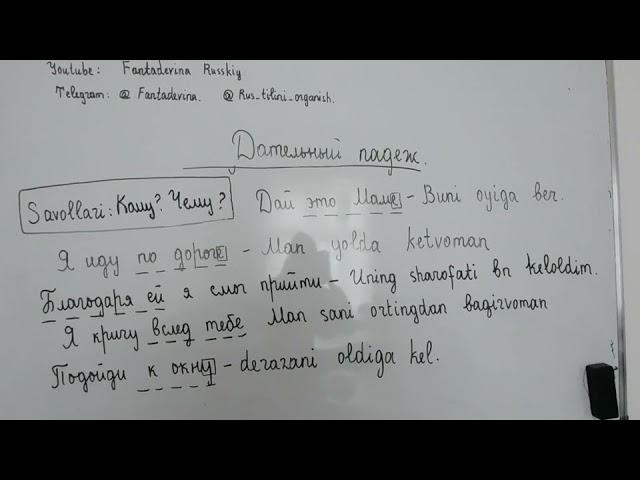 Youtube: Fantaderina Russkiy
Telegram: @ Fantaderina. @ Rus_tilini_organish.
Дательный падеж.
Savollari: Кому? Чему? Дай это Маме - Buni oyiga ber.
Я иду по дороге - Man yolda ketvoman
Благодаря ей я смог прийти - Uning sharofati bn keloldim.
Я кричу вслед тебе Man sani ortingdan baqirvoman
Подойди к окну - derazani oldiga kel.